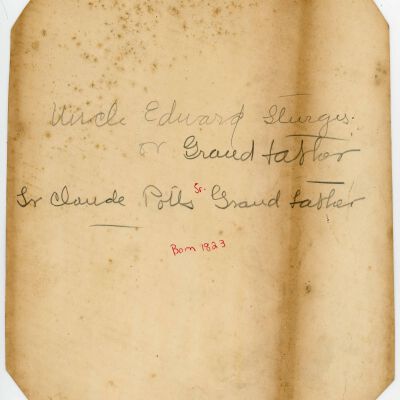 Uncle Edward Sturgis.
or Grand father
Sr Claude Potts Sr. Grand father
Born 1823